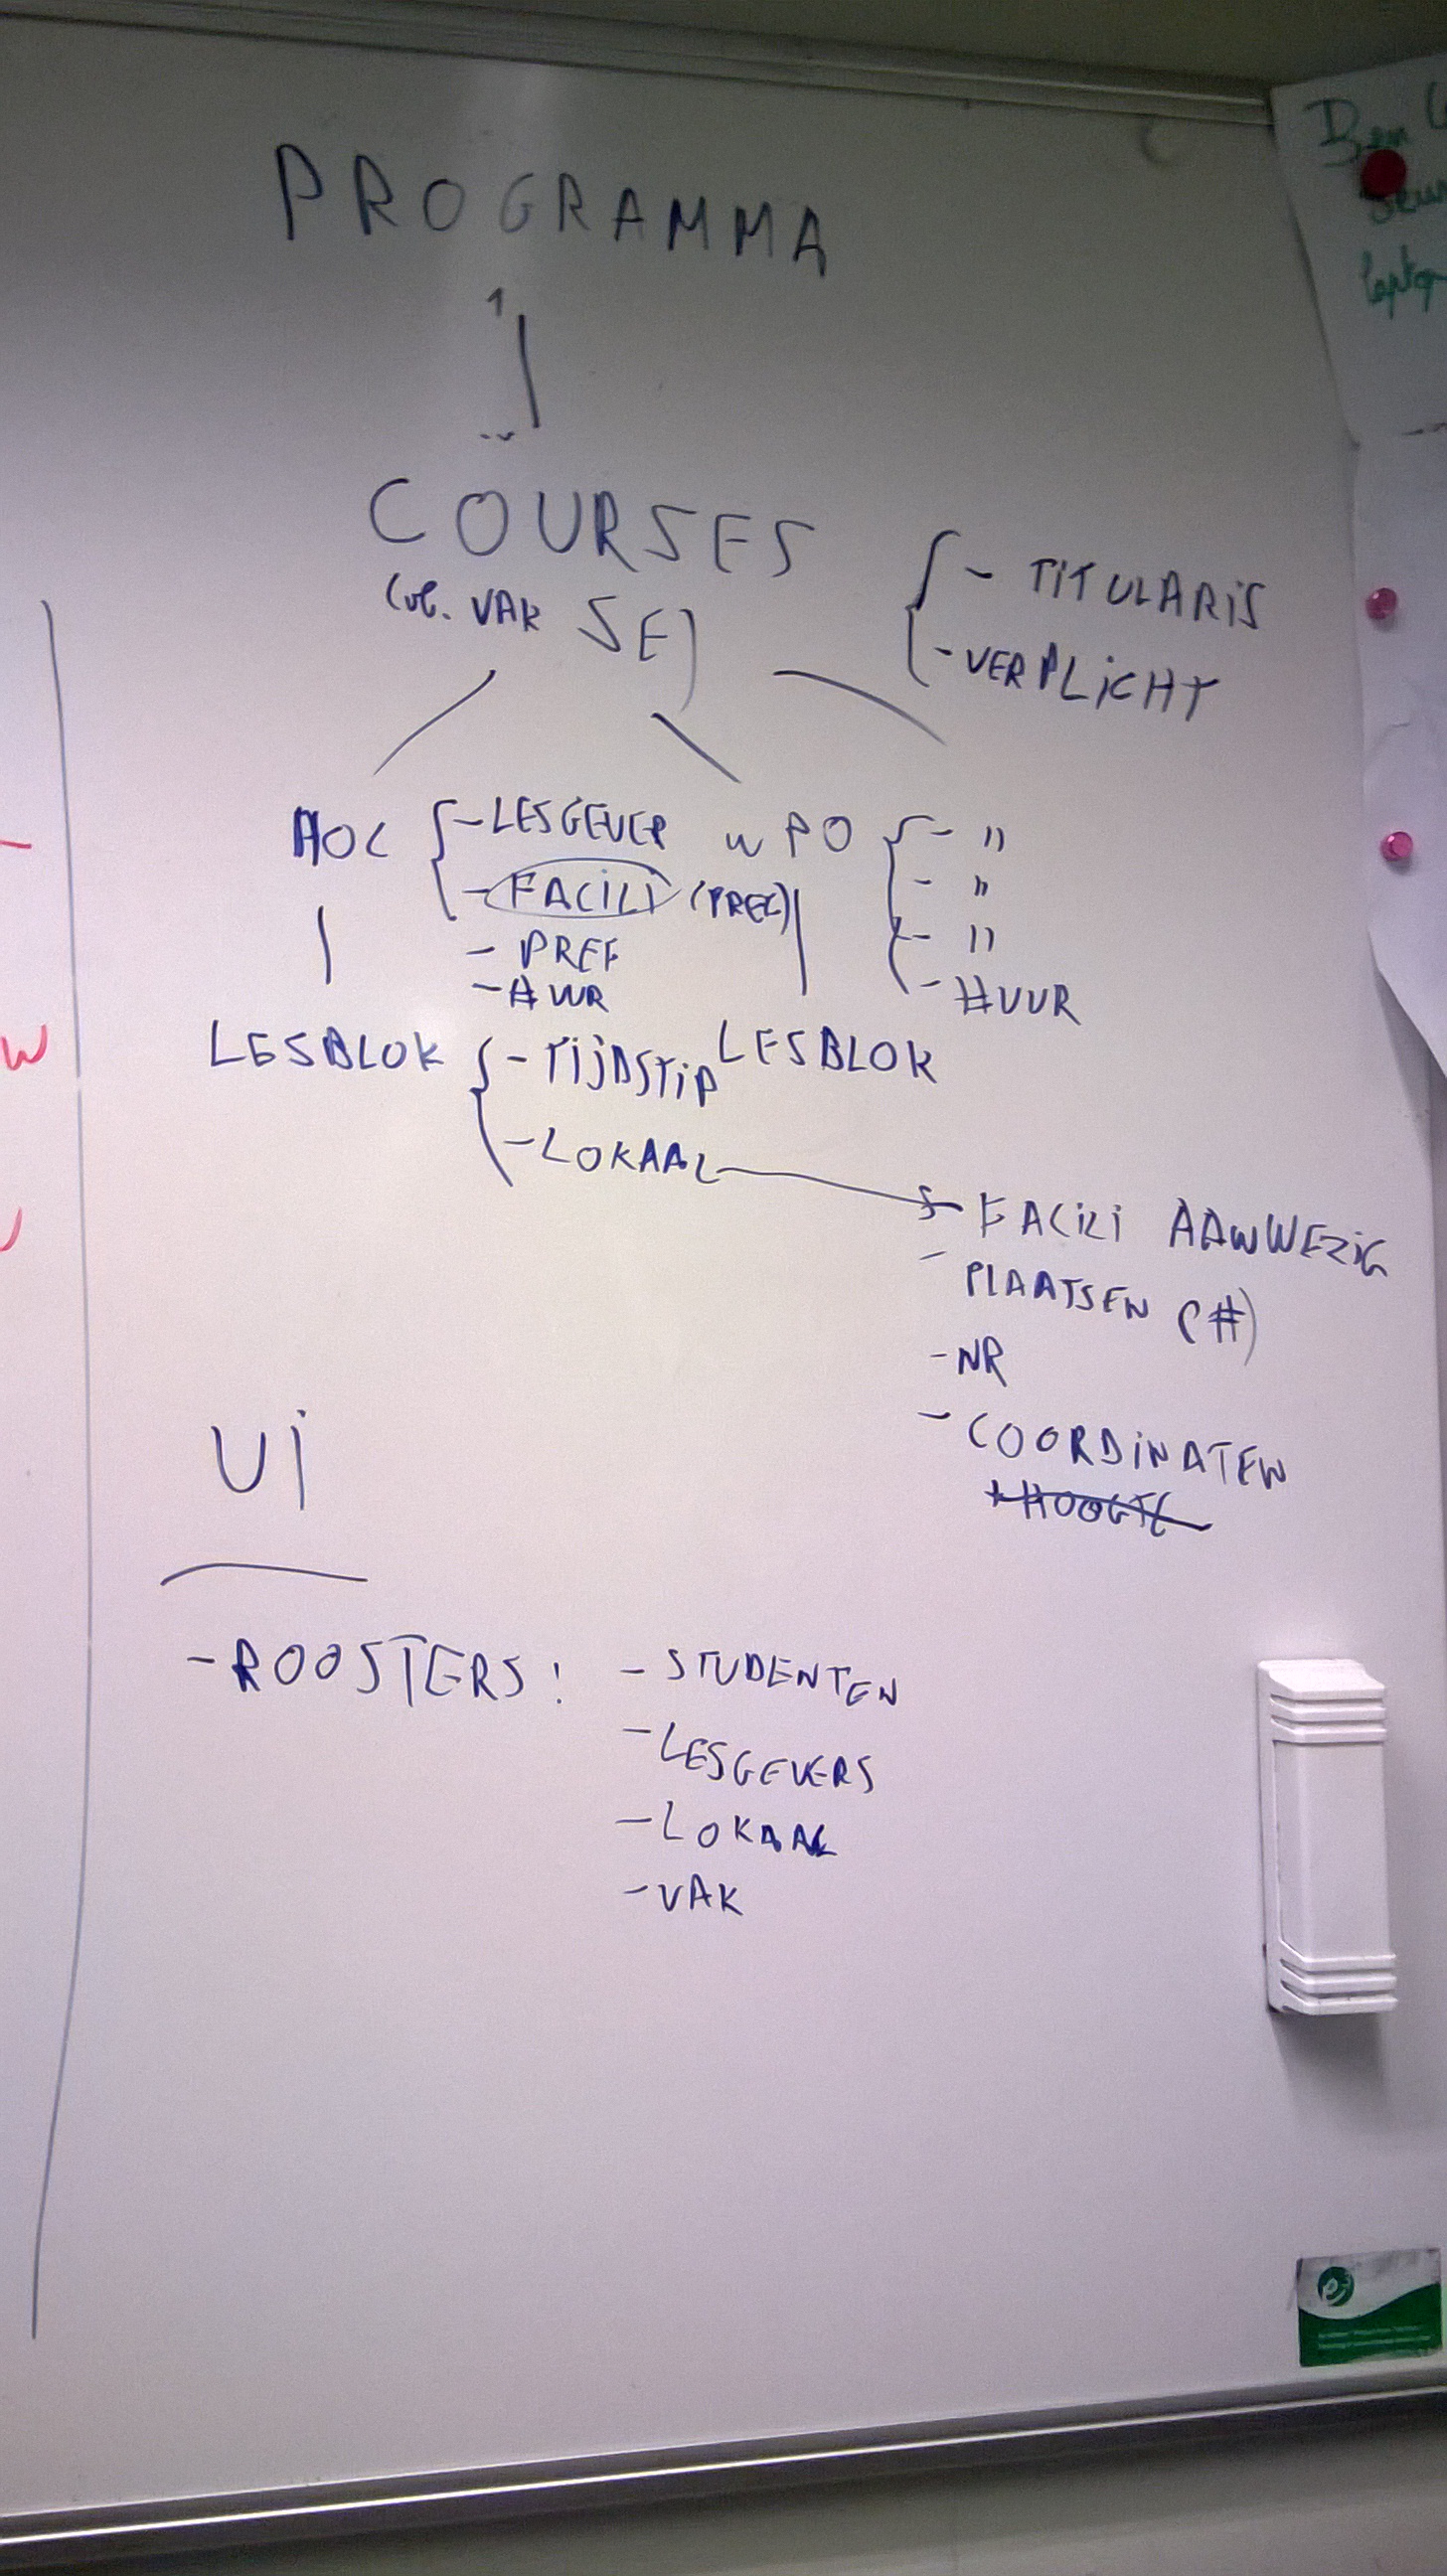 PROGRAMMA
1
COURSES
(vb. VAK SE)
- TITULARIS
- VERPLICHT
HOC
- LESGEVER
- FACILI (PREC)
- PREF
- # UUR
WPO
- "
- "
- "
- #UUR
LESBLOK
- TIJDSTIP
- LOKAAL
LESBLOK
FACILI AANWEZIG
- PLAATSEN (#)
- NR
- COORDINATEN
+ HOOGTE
UI
- ROOSTERS:
- STUDENTEN
- LESGEVERS
- LOKAAL
- VAK